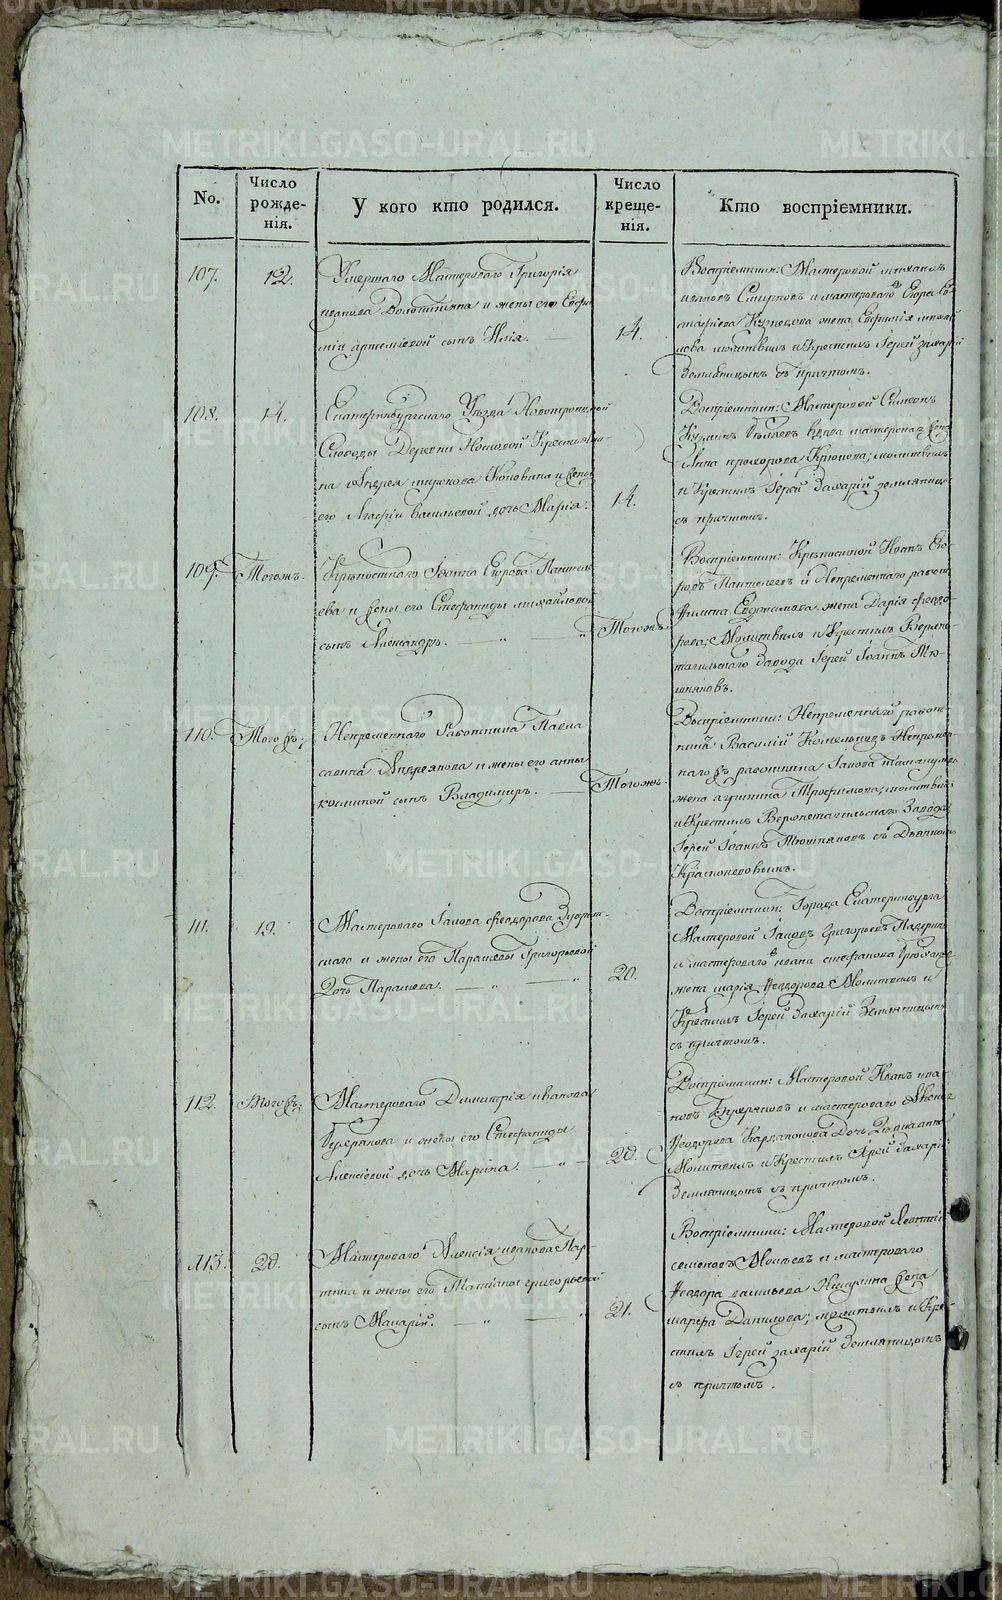 METRIKI.GASO-URAL.RU
No.
Число рожде-нія.
У кого кто родился.
Число креще-нія.
Кто воспріемники.
107.
12.
Умершаго Мастероваго Григорія
иванова Долотинина и жены его Евфи
міи артеміевой сынъ Илія.
14.
Воспріемники: Мастеровой михаилъ
ивановъ Смирновъ и мастероваго Егора Ев
стафіева Кузнецова жена Евфимія
молитвилъ и Крестилъ Іерей Захарій
Земляницынъ съ причтомъ.
108.
14.
Екатеринбургскаго Уѣзда
Слободы Деревни Крестьяни
на Андрея миронова и жены
его Агафіи васильевой дочь Марія.
14.
Воспріемники: Мастеровой Симеонъ
вдова мастерская жена
Анна прохорова Крюкова; молитвилъ
и Крестилъ Іерей Захарій земляницынъ
съ причтомъ.
109.
Тогожъ.
Крѣпостнаго Іоанна Егорова Пантеле
ева и жены его Стефаниды михайловой
сынъ Александръ.
Тогожъ.
Воспріемники: Крѣпостной Иванъ Его
ровъ Пантелеевъ и Непременнаго работ
Филипа Евдокимова жена Дарія феодо
рова; Молитвилъ и Крестилъ Верхне
тагильскаго Завода Іерей Іоаннъ Тю
шняковъ.
110.
Тогожъ.
Непременнаго работника Павла
савина Андреянова и жены его анны
козминой сынъ Владимиръ.
Тогожъ.
Воспріемники: Непременнаго работ
никъ Василій и Непремен
наго жъ работника Іакова
жена агрипина Трофимова; молитвилъ
и Крестилъ Верхнетагильскаго Завода
Іерей Іоаннъ Тюшняковъ съ Дьячкомъ
111.
19.
Мастероваго Іакова феодорова
скаго и жены его Парасковы Григорьевой
Дочь Параскева.
20.
Воспріемники: Города Екатеринбурга
Мастеровой Іаковъ григорьевъ
и мастероваго ивана стефанова
жена марія феодорова Молитвилъ и
Крестилъ Іерей Захарій Земляницынъ
съ причтомъ.
112.
Тогожъ.
Мастероваго Димитрія иванова
Бухрякова и жены его Стефаниды
Алексіевой дочь Марина.
20.
Воспріемники: Мастеровой Иванъ ива
новъ Бухряковъ и мастероваго
феодорова Дочь дѣвица анна
Молитвилъ и Крестилъ Іерей Захарій
Земляницынъ съ причтомъ.
113.
20.
Мастероваго Алексія иванова Пар
тина и жены его Татіаны григорьевой
сынъ Макарій.
21.
Воспріемники: Мастеровой Леонтій
семеновъ и мастероваго
Феодора васильева Никулина жена
марфа Данилова; молитвилъ и Кре
стилъ Іерей захарій Земляницынъ
съ причтомъ.